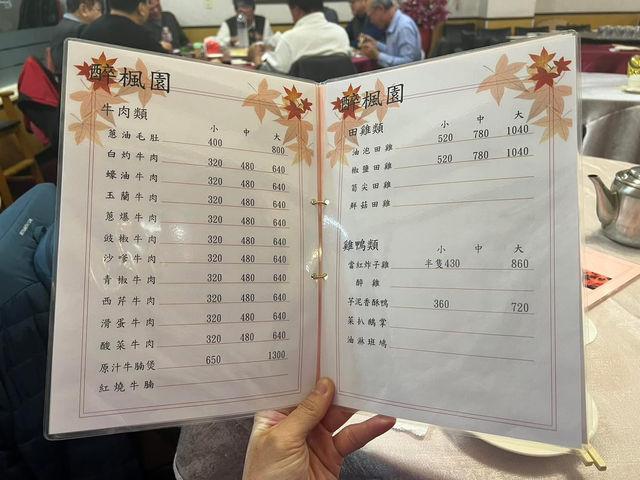 醉楓園
牛肉類
小 中 大
蔥油毛肚 400 800
白灼牛肉 320 480 640
蠔油牛肉 320 480 640
玉蘭牛肉 320 480 640
蔥爆牛肉 320 480 640
豉椒牛肉 320 480 640
沙嗲牛肉 320 480 640
青椒牛肉 320 480 640
西芹牛肉 320 480 640
滑蛋牛肉 320 480 640
酸菜牛肉 320 480 640
原汁牛腩煲 650 1300
紅燒牛腩
醉楓園
田雞類 小 中 大
油泡田雞 520 780 1040
椒鹽田雞 520 780 1040
筍尖田雞
鮮菇田雞
雞鴨類 小 中 大
當紅炸子雞 半隻430 860
醉雞
芋泥香酥鴨 360 720
菜扒鵝掌
油淋斑鳩